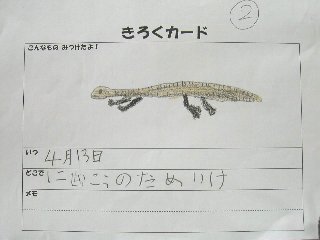 ②
きろくカード
こんなもの みつけたよ！
いつ 4月13日
どこで にしこうのためいけ
メモ